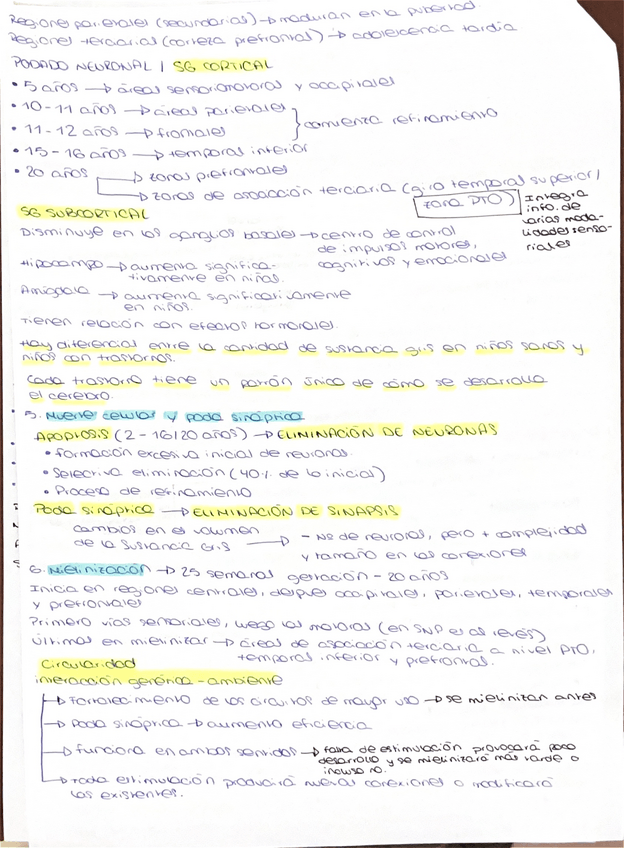 Regiones parietales (secundarias) → maduran en la pubertad
Regiones terciarias (corteza prefrontal) → adolescencia tardía
PODADO NEURONAL / SG CORTICAL
• 5 años → áreas sensoriomotoras y occipitales
• 10-11 años → áreas parietales
• 11-12 años → frontales
} comienza refinamiento
• 15-16 años → temporal inferior
• 20 años → zonas prefrontales
→ zonas de asociación terciaria (giro temporal superior /
zona PTO)
Integra
info. de
varias moda-
lidades senso-
riales
SG SUBCORTICAL
Disminuye en los ganglios basales → centro de control
de impulsos motores,
cognitivos y emocionales
Hipocampo → aumenta significa-
tivamente en niñas.
Amígdala → aumenta significativamente
en niños.
Tienen relación con efectos hormonales.
Hay diferencias entre la cantidad de sustancia gris en niños sanos y
niños con trastornos.
Cada trastorno tiene un patrón único de cómo se desarrolla
el cerebro.
5. Muerte celular y poda sináptica
APOPTOSIS (2-16/20 años) → ELIMINACIÓN DE NEURONAS
• Formación excesiva inicial de neuronas
• Selectiva eliminación (40% de lo inicial)
• Proceso de refinamiento
Poda sináptica → ELIMINACIÓN DE SINAPSIS
cambios en el volumen
de la Sustancia Gris → - Nº de neuronas, pero + complejidad
y tamaño en las conexiones
6. Mielinización → 25 semanas gestación - 20 años
Inicia en regiones centrales, después occipitales, parietales, temporales
y prefrontales
Primero vías sensoriales, luego las motoras (en SNP es al revés)
Últimas en mielinizar → áreas de asociación terciaria a nivel PTO,
temporal inferior y prefrontal.
Circularidad
interacción genética - ambiente
→ Fortalecimiento de los circuitos de mayor uso → se mielinizan antes
→ Poda sináptica → aumento eficiencia
→ funciona en ambos sentidos → falta de estimulación provocará poco
desarrollo y se mielinizará más tarde o
incluso no.
→ toda estimulación producirá nuevas conexiones o modificará
las existentes.